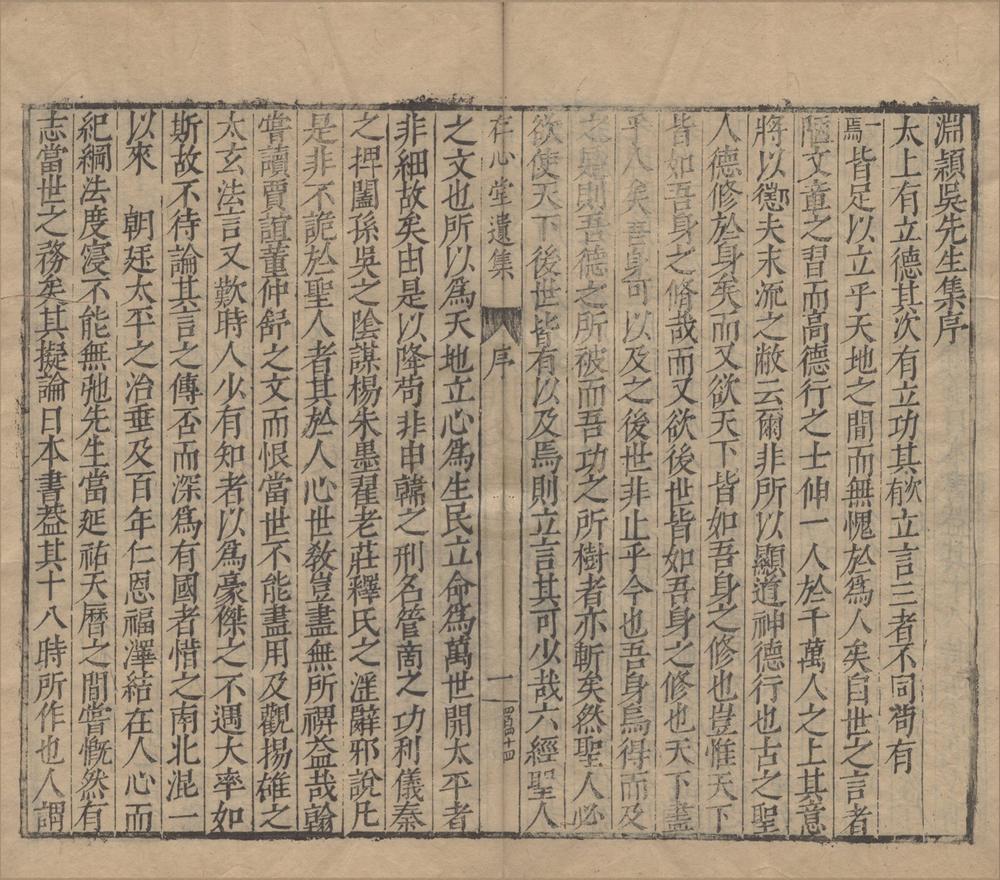 淵頴吳先生集序
太上有立德其次有立功其次有立言三者不同苟有
一焉皆足以立乎天地之間而無愧於為人矣自世之言者
陋文章之習而高德行之士伸一人於千萬人之上其意
將以懲夫末流之敝云爾非所以顯道神德行也古之聖
人德修於身矣而又欲天下皆如吾身之修也豈惟天下
皆如吾身之脩哉而又欲後世皆如吾身之修也天下盖
乎人矣吾身可以及之後世非止乎今也吾身烏得而及
之是則吾德之所被而吾功之所樹者亦斬矣然聖人必
欲使天下後世皆有以及焉則立言其可少哉六經聖人
存心堂遺集
序
一
之文也所以為天地立心為生民立命為萬世開太平者
非細故矣由是以降苟非申韓之刑名管商之功利儀秦
之押闔孫吳之陰謀楊朱墨翟老莊釋氏之淫辭邪說凡
是非不詭於聖人者其於人心世敎豈盡無所禆益哉翰
嘗讀賈誼董仲舒之文而恨當世不能盡用及觀揚雄之
太玄法言又歎時人少有知者以為豪傑之不遇大率如
斯故不待論其言之傳否而深為有國者惜之南北混一
以來　朝廷太平之治垂及百年仁恩福澤結在人心而
紀綱法度寖不能無弛先生當延祐天曆之間嘗慨然有
志當世之務矣其擬論日本書葢其十八時所作也人謂